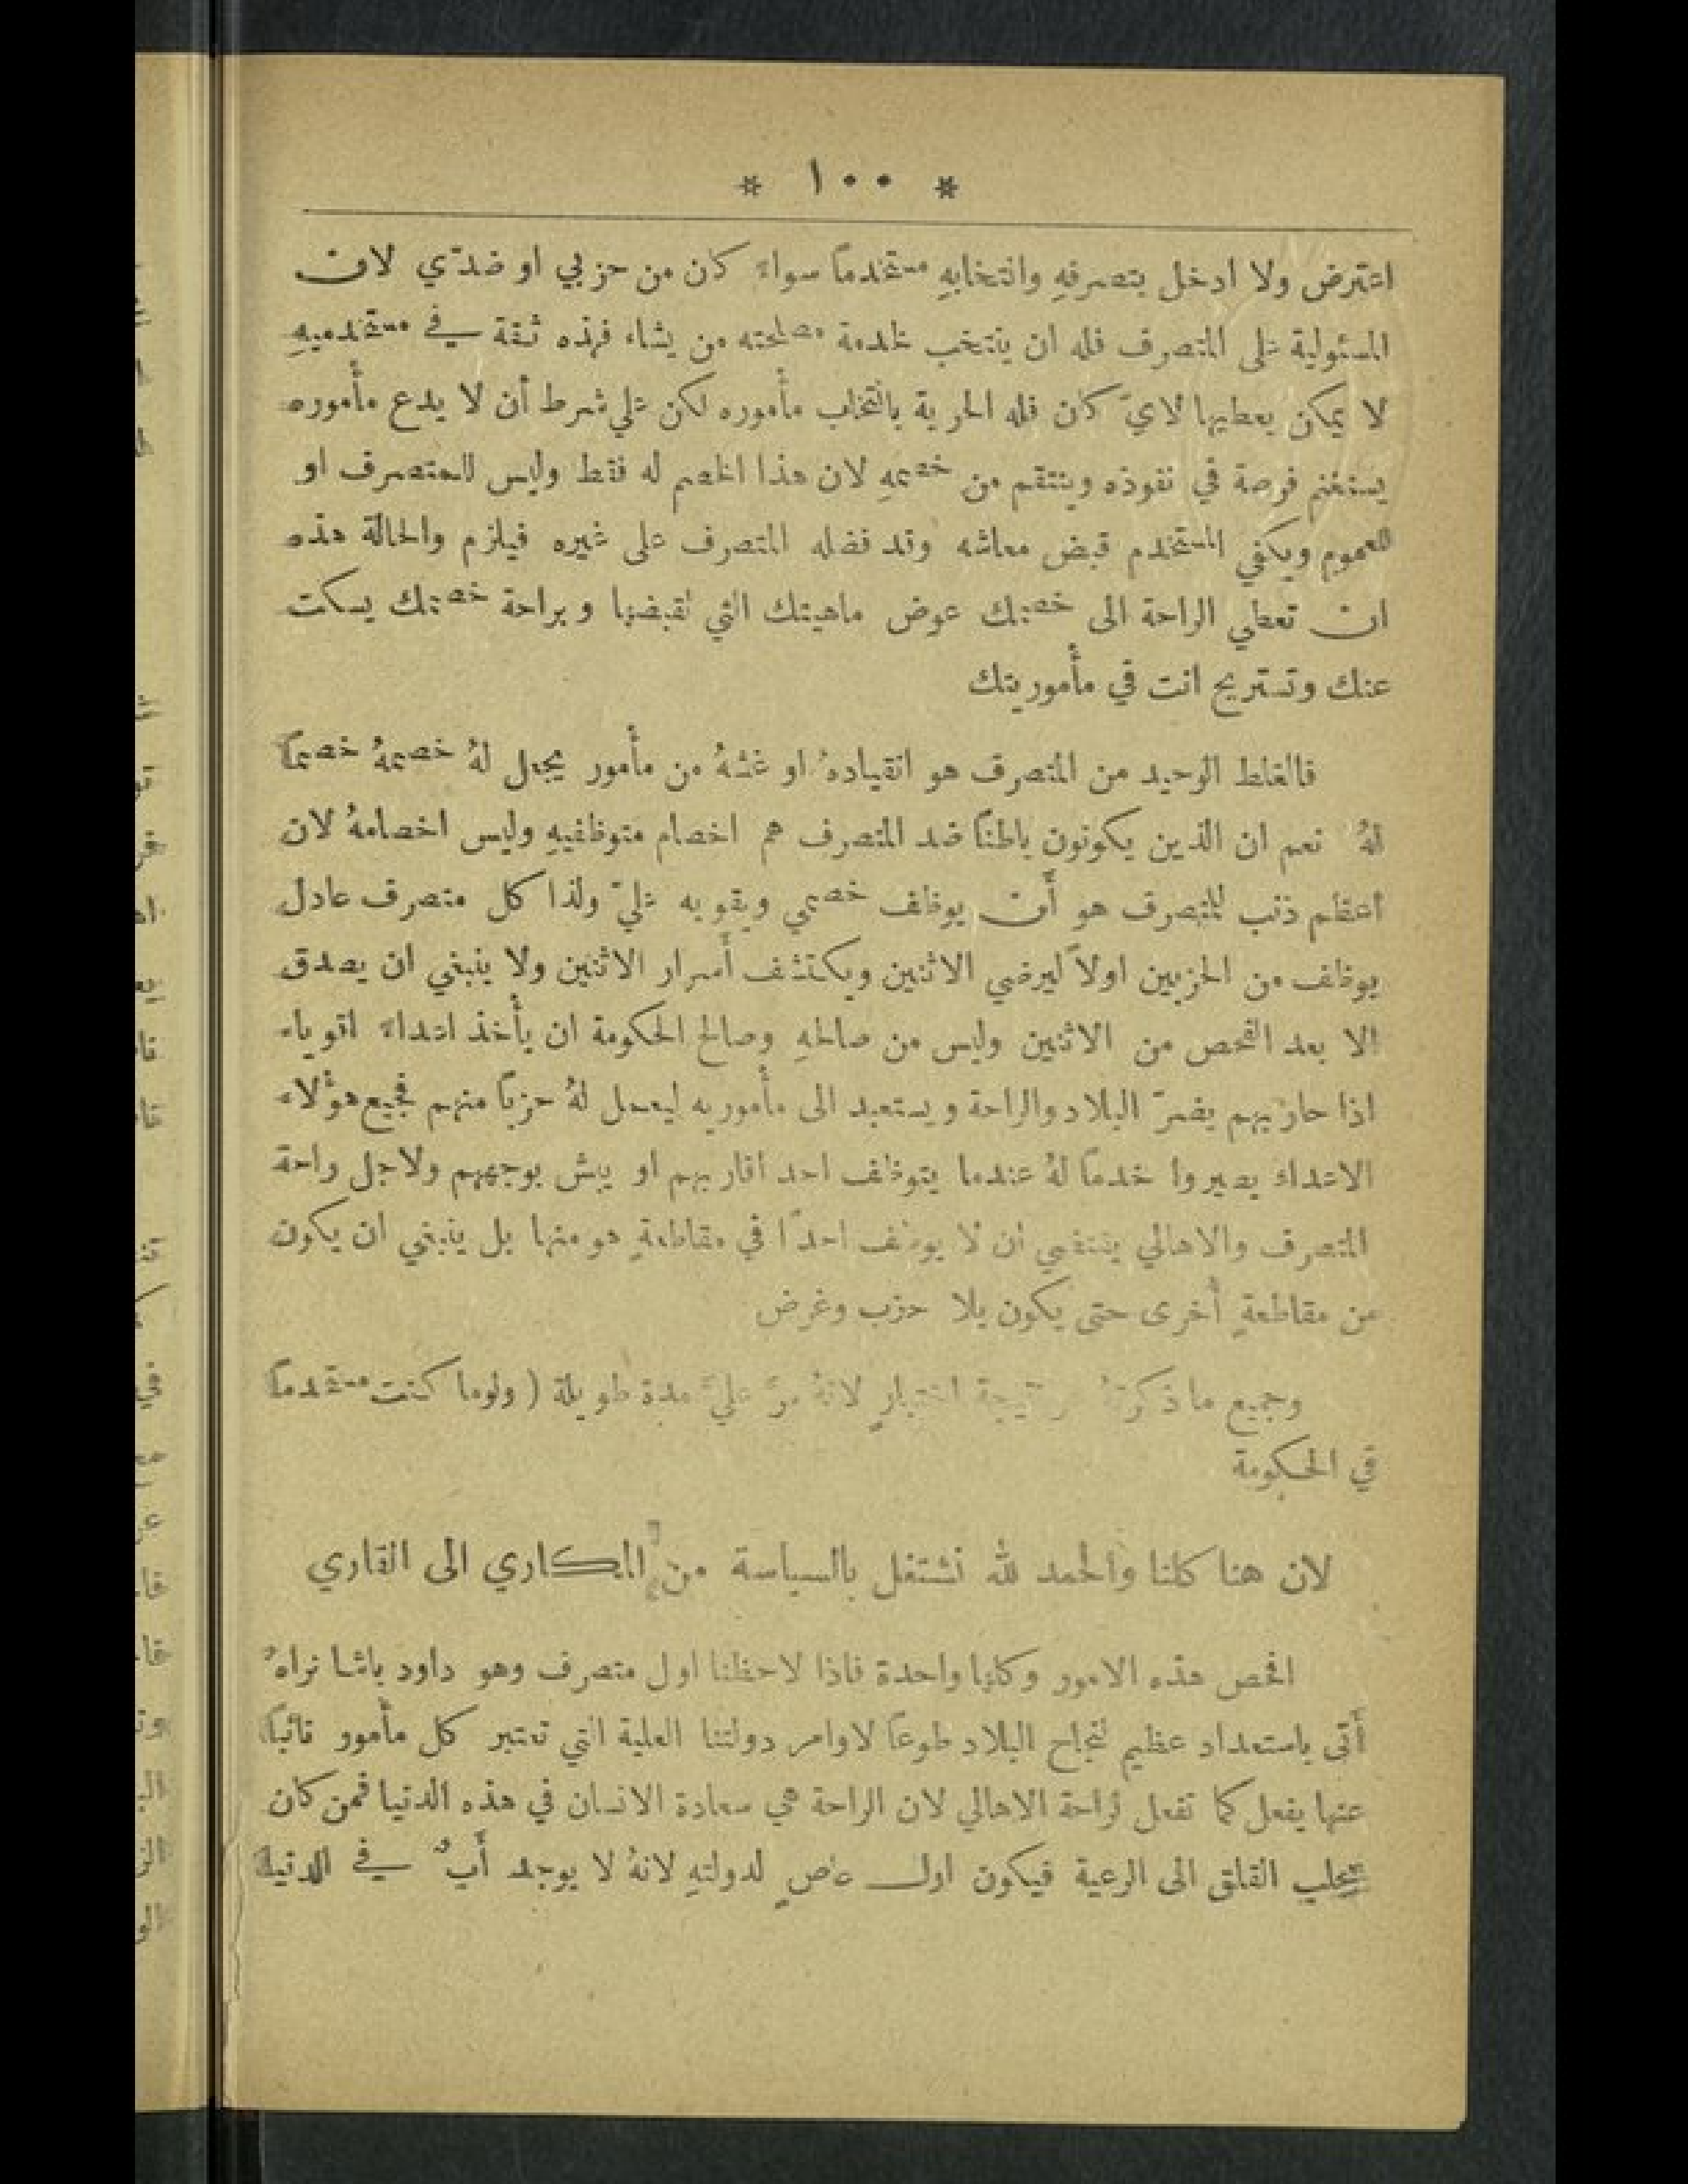 * ١٠٠ *
اعترض ولا ادخل بتصرفهِ وانتخابهِ مستخدمًا سواء كان من حزبي او ضدّي لان
المسئولية على المتصرف فله ان ينتخب لخدمة مصلحته من يشاء فهذه ثقة في مستخدميهِ
لا يمكن يعطيها لايّ كان فله الحرية بانتخاب مأموره لكن على شرط أن لا يدع مأموره
يستغنم فرصة في نفوذه وينتقم من خصمهِ لان هذا الخصم له فقط وليس للمتصرف او
للعموم ويكفي المستخدم قبض معاشه وقد فضله المتصرف على غيره فيلزم والحالة هذه
ان تعطي الراحة الى خصمك عوض ماهيتك التي تقبضها وبراحة خصمك يسكت
عنك وتستريح انت في مأموريتك
فالغلط الوحيد من المتصرف هو انقيادهُ او غشهُ من مأمور يجعل لهُ خصمهُ خصمًا
لهُ نعم ان الذين يكونون باطنًا ضد المتصرف هم اخصام متوظفيهِ وليس اخصامهُ لان
اعظم ذنب للمتصرف هو أن يوظف خصمي ويقويه عليّ ولذا كل متصرف عادل
يوظف من الحزبين اولاً ليرضي الاثنين ويكتشف أسرار الاثنين ولا ينبغي ان يصدق
الا بعد الفحص من الاثنين وليس من صالحهِ وصالح الحكومة ان يأخذ اعداء اقوياء
اذا حازبهم يضرّ البلاد والراحة ويستعبد الى مأموريه ليعمل لهُ حزبًا منهم فجميع هؤلاء
الاعداء يصيروا خدمًا لهُ عندما يتوظف احد اقاربهم او يبش بوجههم ولاجل راحة
المتصرف والاهالي يقتضي ان لا يوظف احدًا في مقاطعةٍ هو منها بل ينبغي ان يكون
من مقاطعةٍ أخرى حتى يكون بلا حزب وغرض
وجميع ما ذكرتهُ نتيجة اختبارٍ لانهُ مرّ عليّ مدة طويلة ( ولوما كنت مستخدمًا
في الحكومة
لان هنا كلنا والحمد لله نشتغل بالسياسة من المكاري الى القاري
افحص هذه الامور وكلها واحدة فاذا لاحظنا اول متصرف وهو داود باشا نراهُ
أتى باستعداد عظيم لنجاح البلاد طوعًا لاوامر دولتنا العلية التي تعتبر كل مأمور نائبًا
عنها يفعل كما تفعل لراحة الاهالي لان الراحة هي سعادة الانسان في هذه الدنيا فمن كان
يجلب القلق الى الرعية فيكون اول عاصٍ لدولتهِ لانهُ لا يوجد أبٌ في الدنيا